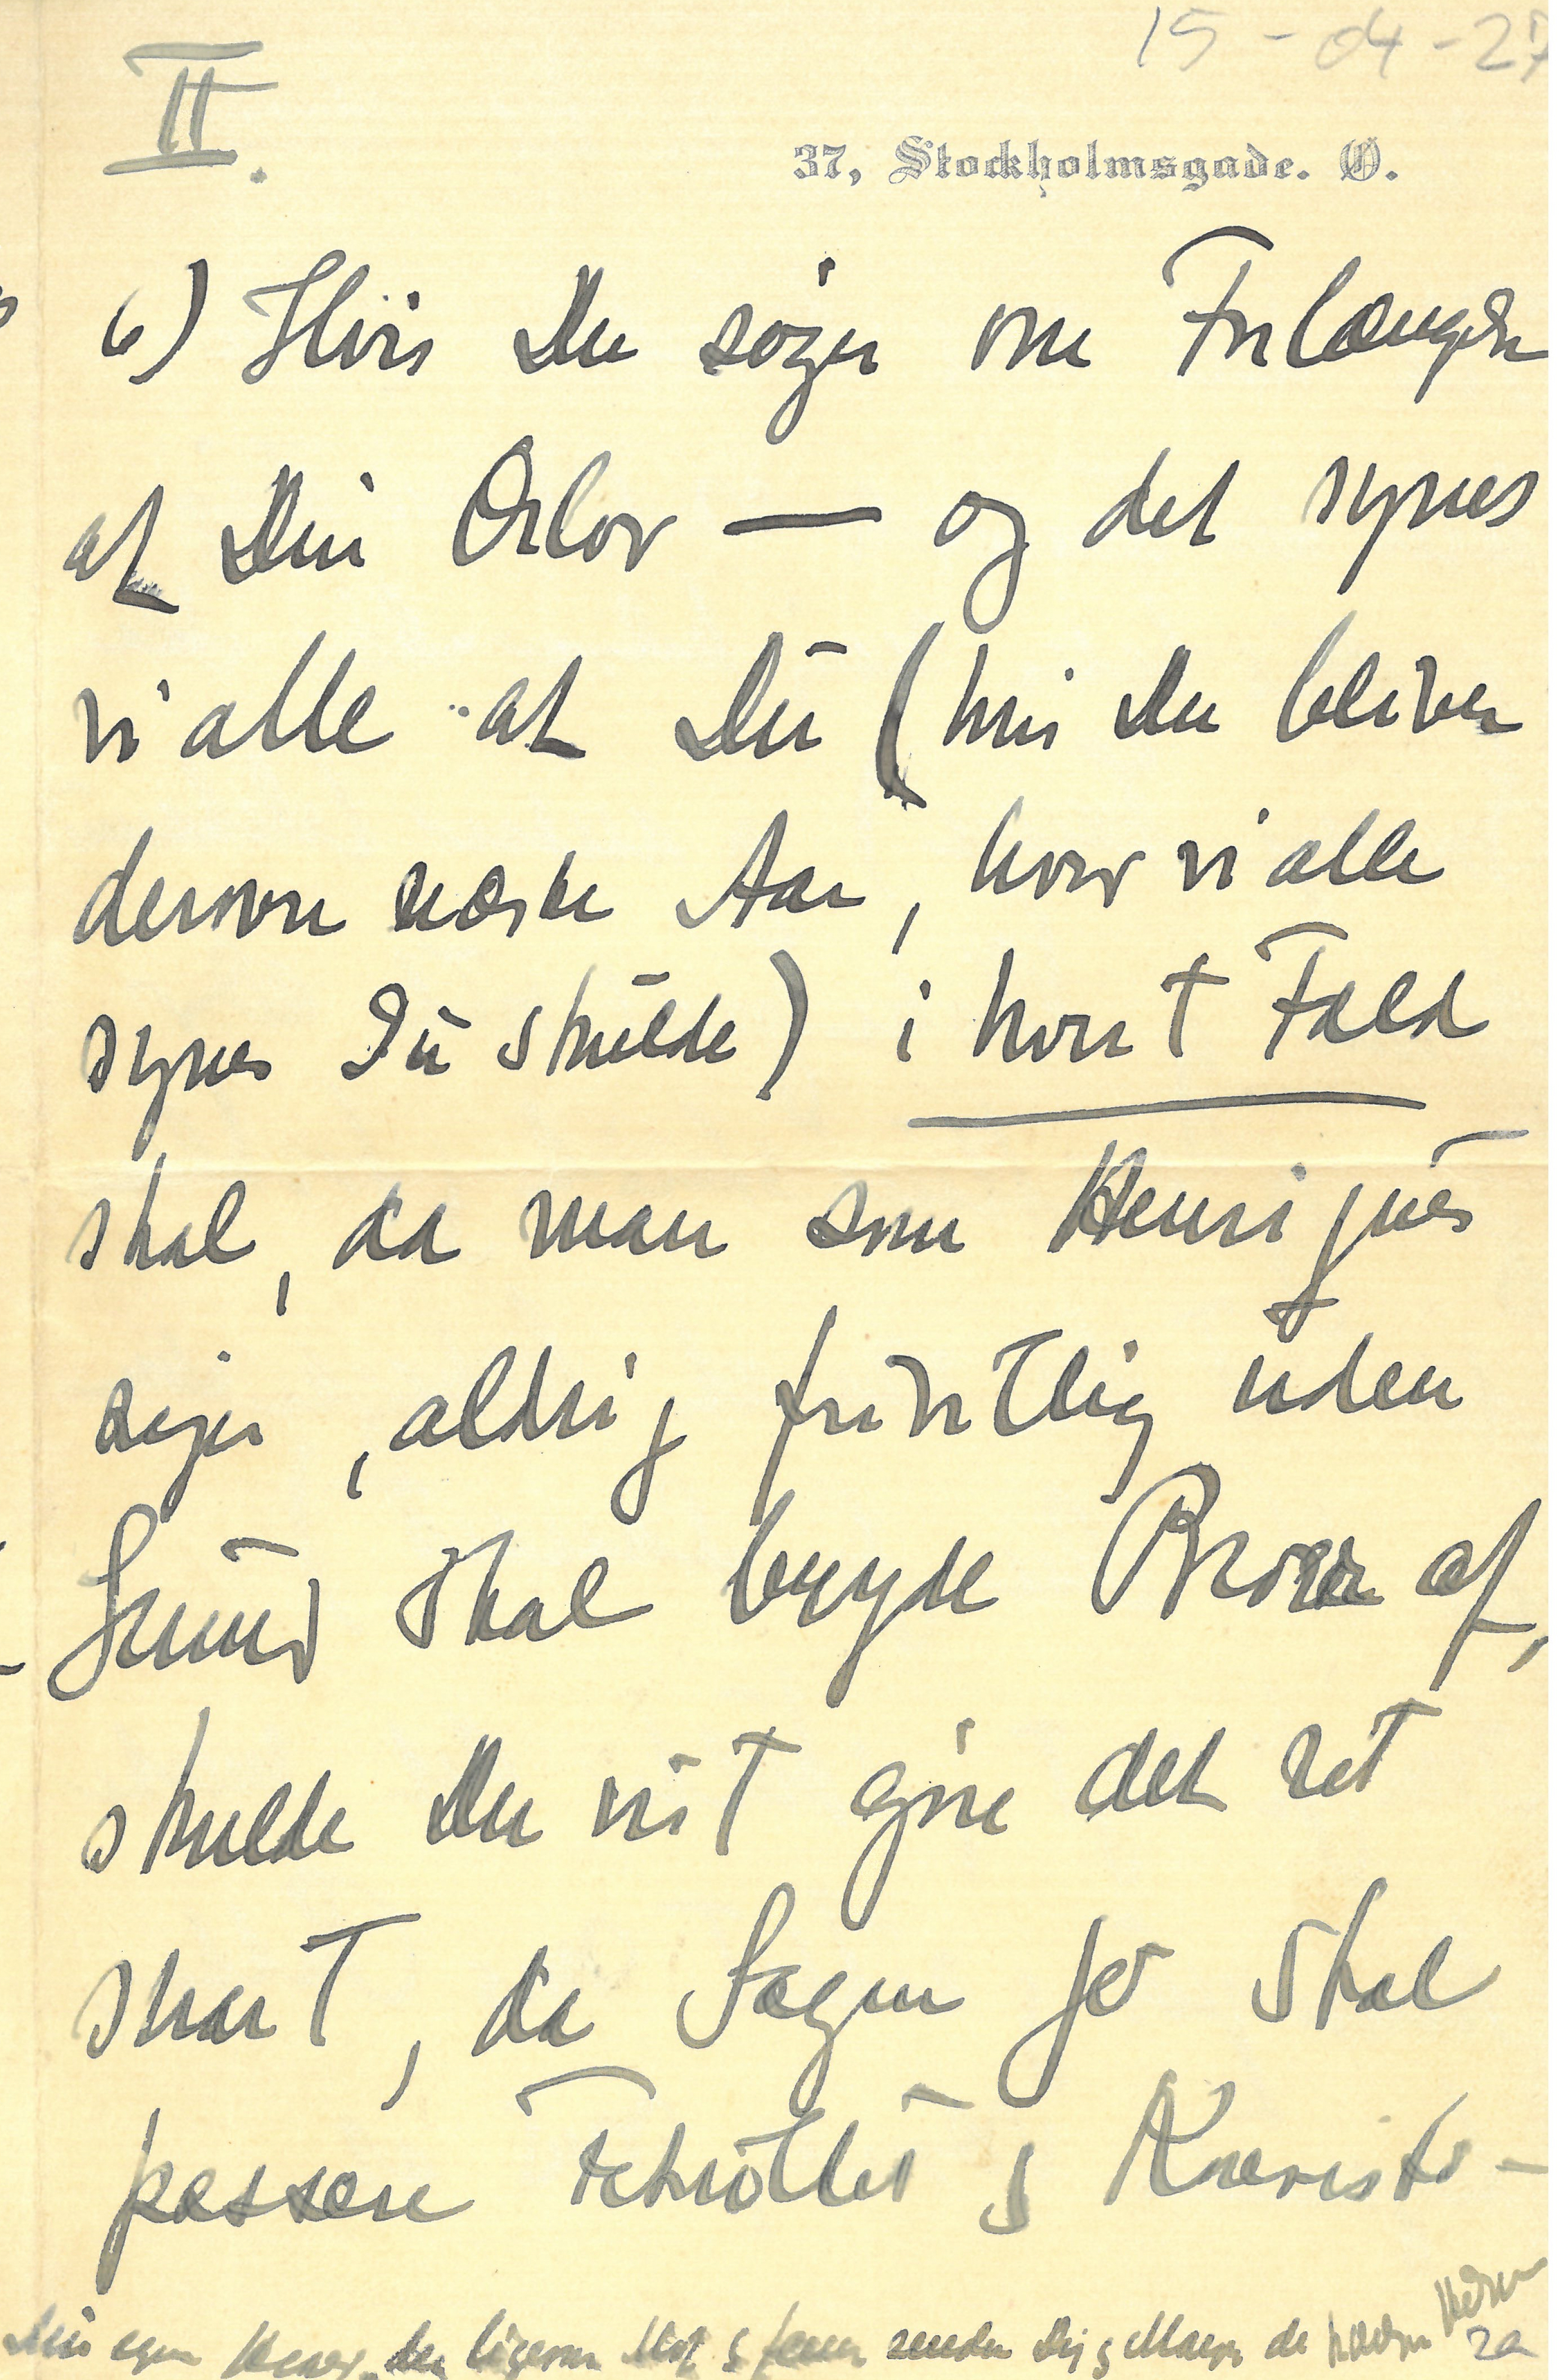 15-04-27
II.
37, Stockholmsgade. Ø.
6) Hvis Du søger om Forlængelse
af Din Orlov — og det synes
vi alle at Du (hvis Du bliver
derovre næste Aar, hvor vi alle
synes Du skulde) i hvert Fald
skal, da man som Henriques
siger, aldrig frivillig uden
Grund skal bryde Broer af,
skulde Du vist gøre det ret
snart, da Sagen jo skal
passere Fakultet og Konsisto-
Din egen
sender Dig og de